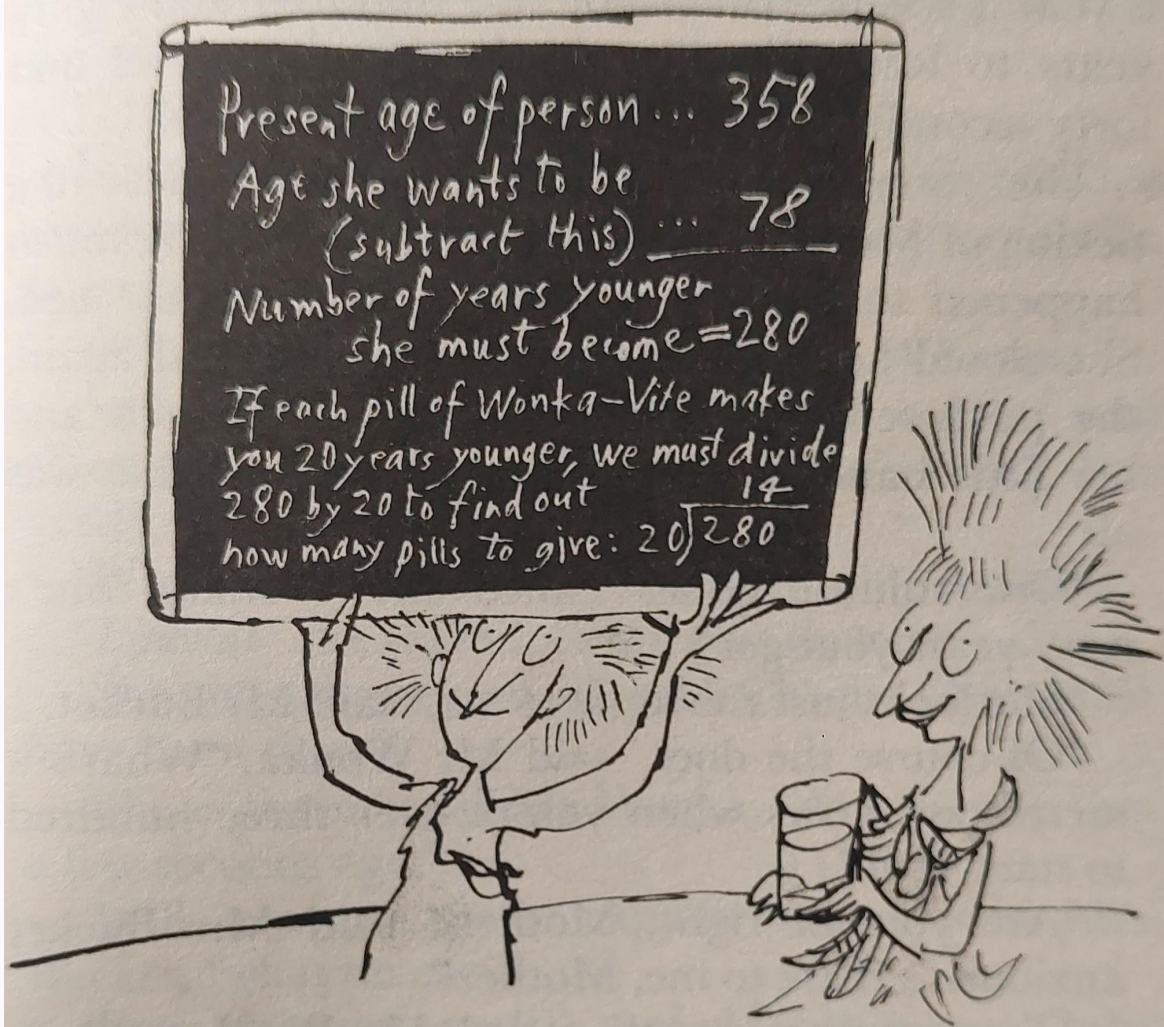 Present age of person... 358
Age she wants to be
(subtract this) ... 78
Number of years younger
she must become=280
If each pill of Wonka-Vite makes
you 20 years younger, we must divide
280 by 20 to find out 14
how many pills to give: 20)280